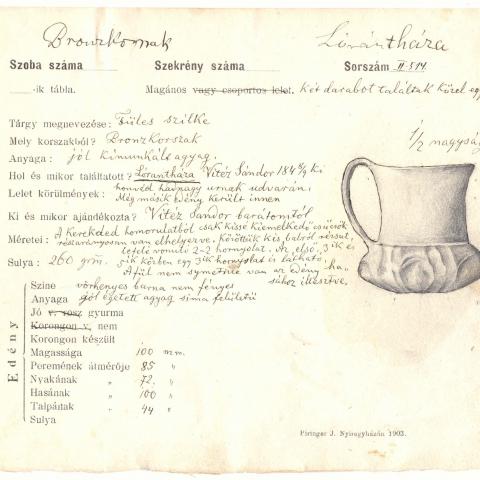 Bronzkornak Lórántháza
Szoba száma Szekrény száma Sorszám II. 514.
-ik tábla. Magános vagy csoportos lelet. két darabot találtak közel egy
Tárgy megnevezése: Füles szilke
Mely korszakból? Bronzkorszak
1/2 nagyság
Anyaga: jól kimunkált agyag.
Hol és mikor találtatott? Lórántháza Vitéz Sándor 184 8/9 ki
Lelet körülmények: honvéd hadnagy urnak udvarán.
Mégmásik edény került innen
Ki és mikor ajándékozta? Vitéz Sándor barátomtól
Méretei: A kerekded homorulatból csak kissé kiemelkedő csücsök
részarányosan van elhelyezve. Közöttük kis balról réssut.
lefelé vonuló 2-2 hornyolat. Az első 3ik és
Sulya: 260 grm. 3ik közben egy 3ik hornyolat is látható.
A fül nem symetrice van az edény ha-
sához illesztve.
Edény
Szine vörhenyes barna nem fényes
Anyaga jól égetett agyag sima felületű
Jó v. rosz gyurma
Korongon v. nem
Korongon készült
Magassága 100 m.m.
Peremének átmérője 85 "
Nyakának " 72. "
Hasának " 100 "
Talpának " 44 "
Sulya
Piringer J. Nyiregyházán 1903.